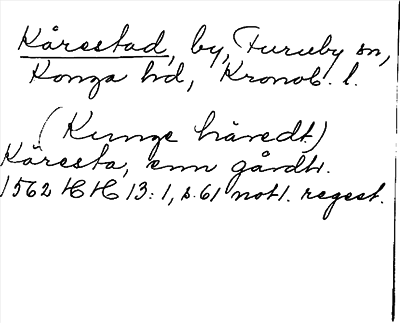 Kårestad, by, Furuby sn,
Konga hd, Kronob. l.
(Kunge häredt)
Käresta, enn gårdh.
1562 HH 13:1, s. 61 not 1. regest.